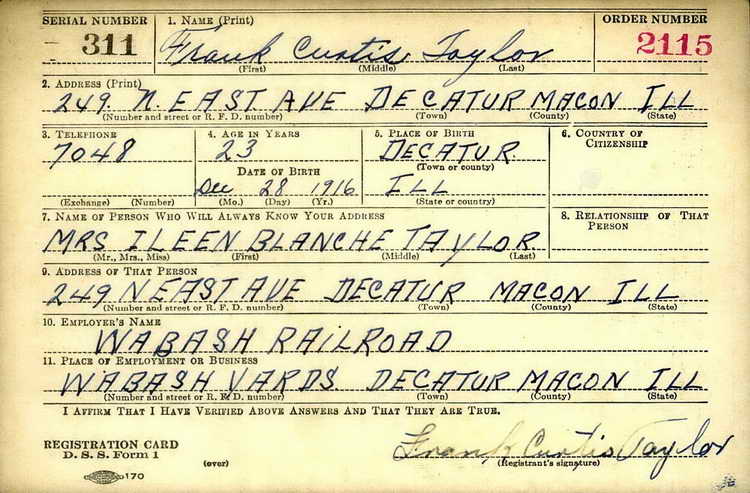 SERIAL NUMBER 1. NAME (Print) ORDER NUMBER
311 Frank Curtis Taylor 2115
(First) (Middle) (Last)
2. ADDRESS (Print)
249 N. EAST AVE DECATUR MACON ILL
(Number and street or R. F. D. number) (Town) (County) (State)
3. TELEPHONE 4. AGE IN YEARS 5. PLACE OF BIRTH 6. COUNTRY OF CITIZENSHIP
7048 23 DECATUR.
DATE OF BIRTH (Town or county)
Dec 28 1916 ILL
(Exchange) (Number) (Mo.) (Day) (Yr.) (State or country)
7. NAME OF PERSON WHO WILL ALWAYS KNOW YOUR ADDRESS 8. RELATIONSHIP OF THAT PERSON
MRS ILEEN BLANCHE TAYLOR.
(Mr., Mrs., Miss) (First) (Middle) (Last)
9. ADDRESS OF THAT PERSON
249 N EAST AVE DECATUR MACON ILL
(Number and street or R. F. D. number) (Town) (County) (State)
10. EMPLOYER'S NAME
WABASH RAILROAD
11. PLACE OF EMPLOYMENT OR BUSINESS
WABASH YARDS. DECATUR MACON ILL
(Number and street or R. F. D. number) (Town) (County) (State)
I AFFIRM THAT I HAVE VERIFIED ABOVE ANSWERS AND THAT THEY ARE TRUE.
REGISTRATION CARD
D. S. S. Form 1 Frank Curtis Taylor
(over) (Registrant's signature)
170